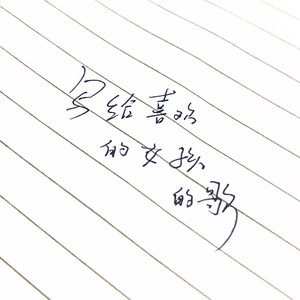 写给喜欢
的女孩
的歌